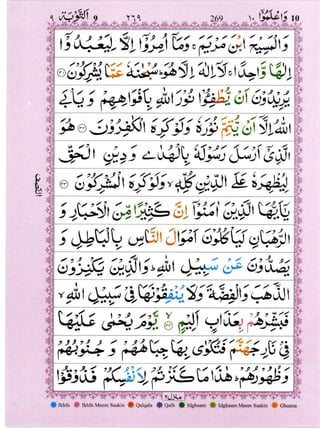 ٩ اَلتَّوْبَة ٩ ٢٦٩ 269 وَاعْلَمُوْٓا ١٠ 10
وَالْمَسِيْحَ ابْنَ مَرْيَمَ ۚ وَمَآ اُمِرُوْٓا اِلَّا لِيَعْبُدُوْٓا
اِلٰهًا وَّاحِدًا ۚ لَآ اِلٰهَ اِلَّا هُوَ ؕ سُبْحٰنَهٗ عَمَّا يُشْرِكُوْنَ ﴿۳۱﴾
يُرِيْدُوْنَ اَنْ يُّطْفِـُٔوْا نُوْرَ اللّٰهِ بِاَفْوَاهِهِمْ وَ يَاْبَى
اللّٰهُ اِلَّآ اَنْ يُّتِمَّ نُوْرَهٗ وَلَوْ كَرِهَ الْكٰفِرُوْنَ ﴿۳۲﴾ هُوَ
الَّذِيْٓ اَرْسَلَ رَسُوْلَهٗ بِالْهُدٰى وَ دِيْنِ الْحَقِّ
لِيُظْهِرَهٗ عَلَى الدِّيْنِ كُلِّهٖ ۙ وَلَوْ كَرِهَ الْمُشْرِكُوْنَ ﴿۳۳﴾
يٰٓاَيُّهَا الَّذِيْنَ اٰمَنُوْٓا اِنَّ كَثِيْرًا مِّنَ الْاَحْبَارِ وَ
الرُّهْبَانِ لَيَاْكُلُوْنَ اَمْوَالَ النَّاسِ بِالْبَاطِلِ وَ
يَصُدُّوْنَ عَنْ سَبِيْلِ اللّٰهِ ؕ وَالَّذِيْنَ يَكْنِزُوْنَ
الذَّهَبَ وَالْفِضَّةَ وَلَا يُنْفِقُوْنَهَا فِيْ سَبِيْلِ اللّٰهِ ۙ
فَبَشِّرْهُمْ بِعَذَابٍ اَلِيْمٍ ﴿۳۴﴾ يَّوْمَ يُحْمٰى عَلَيْهَا
فِيْ نَارِ جَهَنَّمَ فَتُكْوٰى بِهَا جِبَاهُهُمْ وَ جُنُوْبُهُمْ
وَ ظُهُوْرُهُمْ ؕ هٰذَا مَا كَنَزْتُمْ لِاَنْفُسِكُمْ فَذُوْقُوْا
النصف
منزل ٢
Ikhfa Ikhfa Meem Saakin Qalqala Qalb Idghaam Idghaam Meem Saakin Ghunna